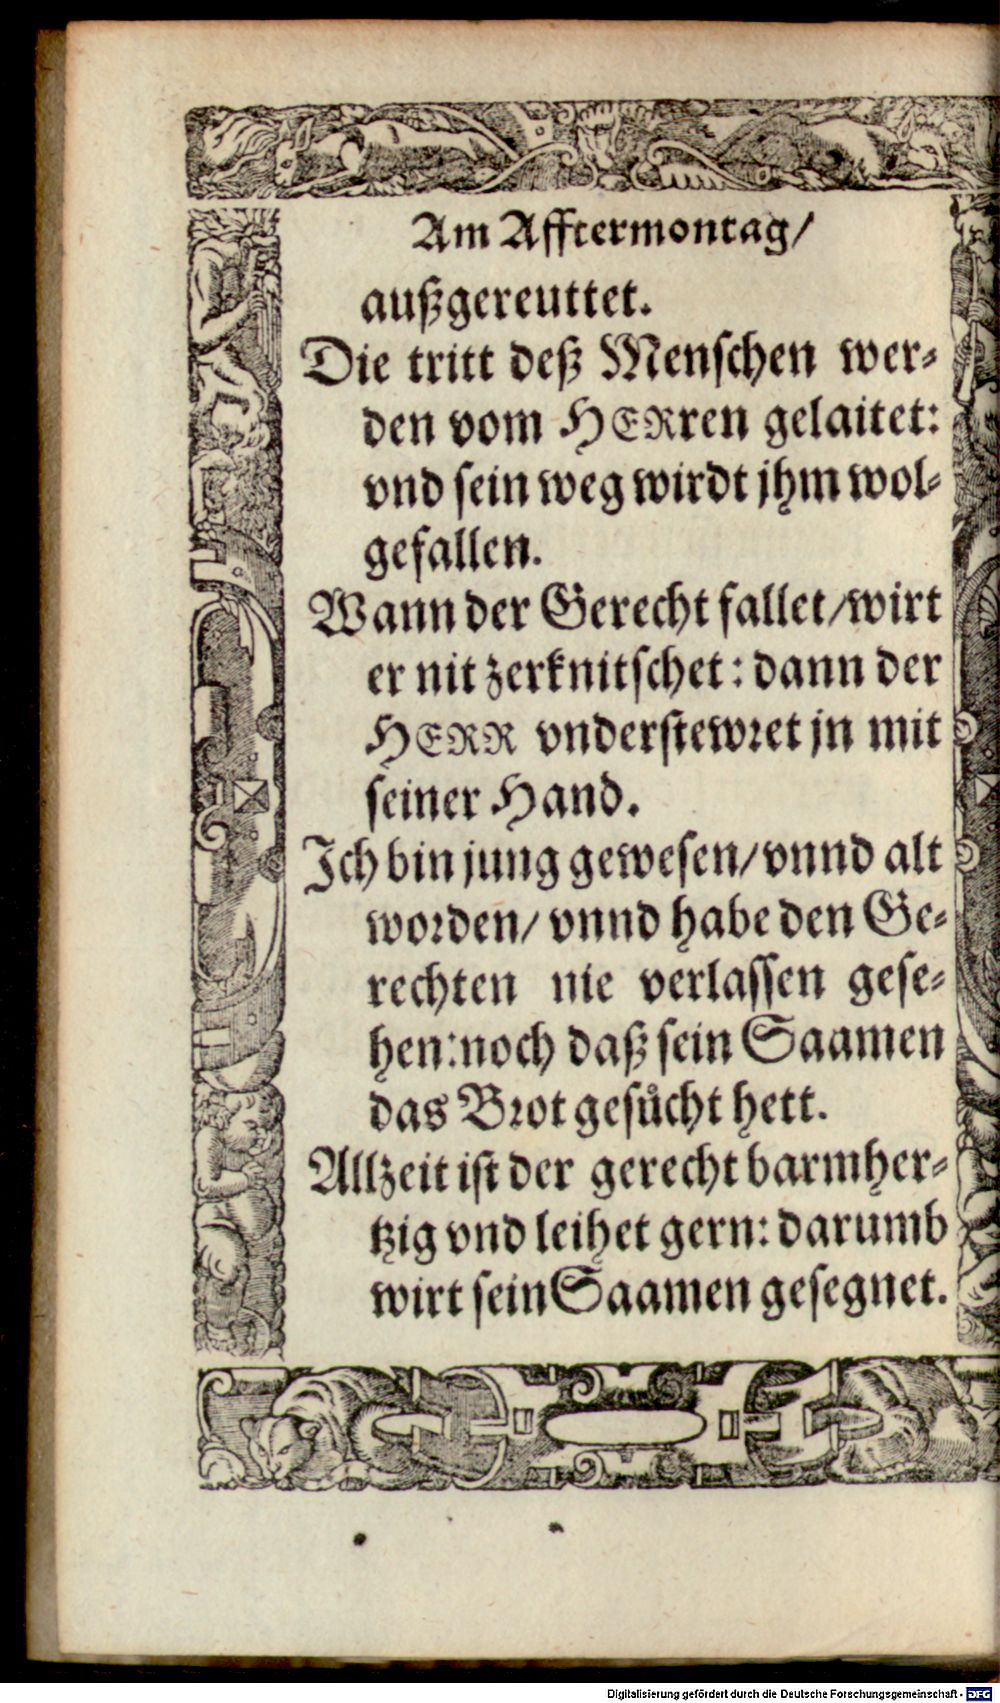 Am Afftermontag/
außgereuttet.
Die tritt deß Menschen wer-
den vom HERren gelaitet:
vnd sein weg wirdt jhm wol-
gefallen.
Wann der Gerecht fallet/wirt
er nit zerknitschet: dann der
HERR vnderstewret jn mit
seiner Hand.
Ich bin jung gewesen/vnnd alt
worden/ vnnd habe den Ge-
rechten nie verlassen gese-
hen:noch daß sein Saamen
das Brot gesůcht hett.
Allzeit ist der gerecht barmher-
tzig vnd leihet gern: darumb
wirt sein Saamen gesegnet.
Digitalisierung gefördert durch die Deutsche Forschungsgemeinschaft - DFG